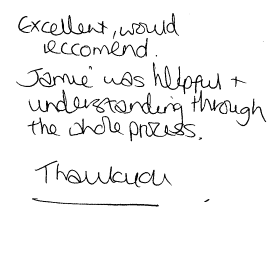 Excellent, would
reccomend.
Jamie was helpful +
understanding through
the whole process.
Thankyou